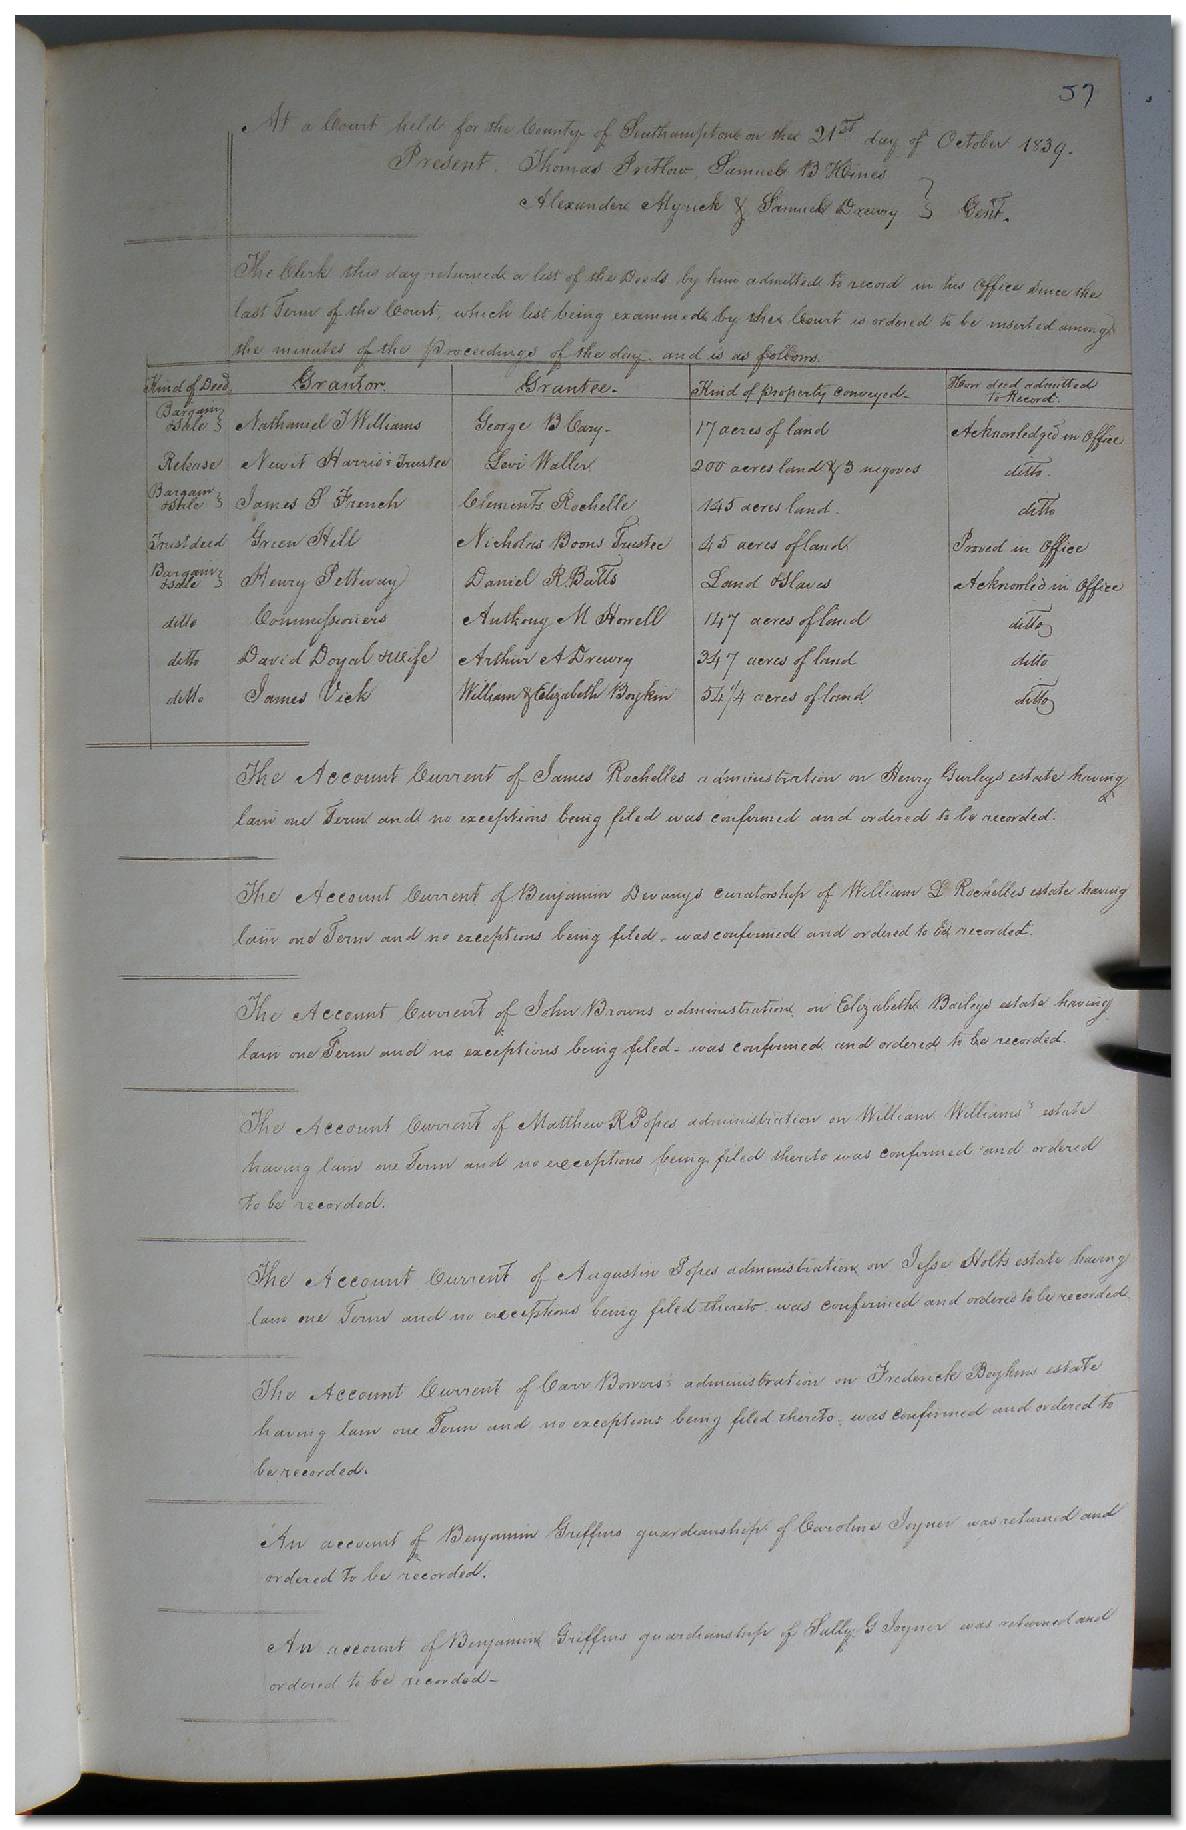 57
At a Court held for the County of Southampton on the 21st day of October 1839.
Present. Thomas Pretlow, Samuel B Hines
Alexander Myrick & Samuel Drewry } Gent.
The Clerk this day returned a list of the Deeds by him admitted to record in his Office since the
last Term of the Court, which list being examined by the Court is ordered to be inserted among
the minutes of the proceedings of the day and is as follows.
Kind of Deed Grantor Grantee- Kind of property conveyed- How deed admitted to Record.
Bargain & Sale } Nathaniel T Williams George B Cary- 17 acres of land Acknowledged in Office
Release Newit Harris's Trustee Levi Waller 200 acres land & 3 negroes ditto.
Bargain & Sale } James S French Clements Rochelle 145 acres land. ditto
Trust deed Green Hill Nicholas Boons Trustee 45 acres of land Proved in Office
Bargain & Sale } Henry Pettway Daniel R Batts Land & Slaves Acknowled in Office
ditto Commissioners Anthony M Howell 147 acres of land ditto
ditto David Doyal & wife Arthur A Drewry 347 acres of land ditto
ditto James Vick William & Elizabeth Boykin 54 1/4 acres of land ditto
The Account Current of James Rochelles administration on Henry Gurleys estate having
lain one Term and no exceptions being filed was confirmed and ordered to be recorded.
The Account Current of Benjamin Devanys curatorship of William L Rochelles estate having
lain one Term and no exceptions being filed - was confirmed and ordered to be recorded.
The Account Current of John Browns administration on Elizabeth Baileys estate having
lain one Term and no exceptions being filed - was confirmed and ordered to be recorded.
The Account Current of Matthew R Popes administration on William Williams" estate
having lain one Term and no exceptions being filed thereto was confirmed and ordered
to be recorded.
The Account Current of Augustin Popes administration on Jesse Holts estate having
lain one Term and no exceptions being filed thereto was confirmed and ordered to be recorded
The Account Current of Carr Bowers' administration on Frederick Boykins estate
having lain one Term and no exceptions being filed thereto - was confirmed and ordered to
be recorded.
An account of Benjamin Griffins guardianship of Caroline Joyner was returned and
ordered to be recorded.
An account of Benjamin Griffins guardianship of Sally G Joyner was returned and
ordered to be recorded-